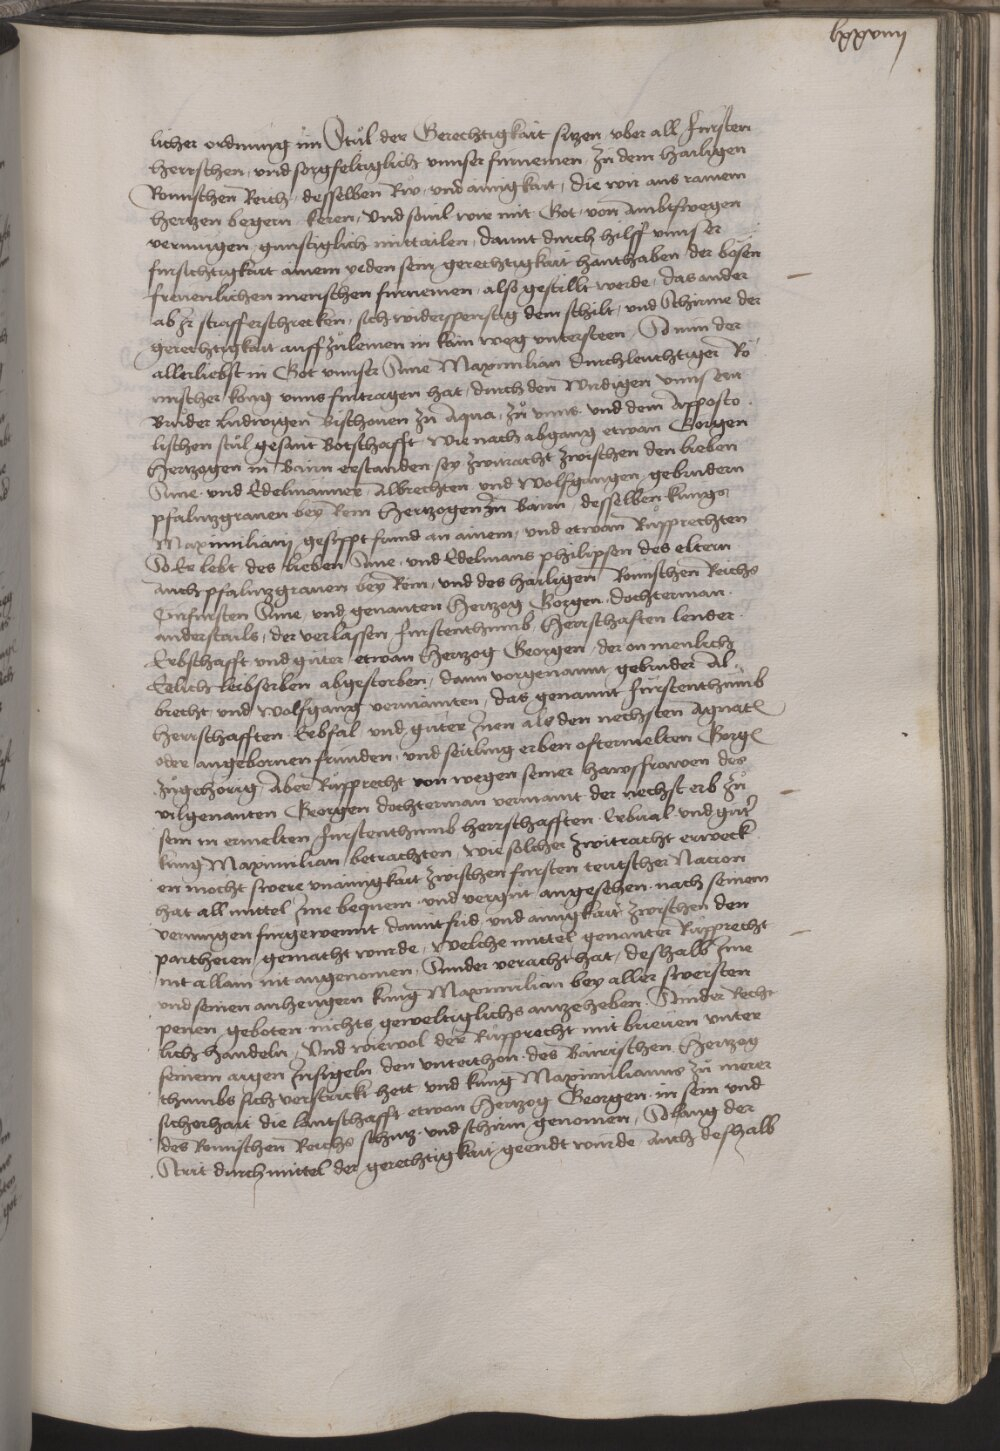 lxxviiij
licher ordnung im Stul der Gerechtigkait sitzen, vber all fursten
herrschen, und sorgfeltiglich vnnser furnemen, zu dem hailigen
Romischen Reich, desselben Rw, vnd ainigkait, die wir aus rainem
hertzen begern, keren, Vnd souil wir mit Got, von Ambtswegen
vermugen, gunstiglich mittailen, damit durch hilff vnnser
fursichtigkait ainem yeden sein gerechtigkait hanthaben, der bosen
freuenlichen menschen furnemen, also gestillt werde, das ander
ab Jr straff erschrecken, sich widerspenstig dem schilt, vnd Schirme der
gerechtigkait auff zulemen in kain weg untersteen, So nun der
allerliebst in Got vnnser Sune Maximilian durchleuchtiger Ro
mischer konig vnns furtragen hat, durch den Wirdigen vnnsern
Bruder Ludwigen Bischouen zu Aqua, zu vnns und dem Apposto
lischen stul gesant Botschafft, Wie nach abgang etwan Gorgen
Hertzogen in Bairn erstanden sey zwitracht zwischen den lieben
Sune vnd Edelmanner Albrechten vnd Wolfgangen, gebrudern
pfaltzgrauen bey Rein Hertzogen in Bairn, desselben kunigs
Maximilian, gesippt frund an ainem, und etwan Rupprechten
So Er lebt, des lieben Sune, vnd Edelmans philipsen des eltern
auch pfaltzgrauen bey Rein, und des hailigen Romischen Reichs
Curfursten Sune, und genanten Hertzog Gorgen, dochterman,
anderstails, der verlassen furstenthumb, Herrschafften lender,
Erbschafft vnd guter, etwan Hertzog Georgen, der on menlich
Eelich leibserben abgestorben, dann vorgenannt gebruder Al
brecht, und Wolfgang vermainten, das genannt furstenthumb
herrschafften, Erbfal, und guter Jnen als den nechsten Agnaten
oder angebornen frunden, und seitling erben oftermelten Gorgen
zugehorig, Aber Rupprecht von wegen seiner hawsfrawen des
vilgenanten Georgen dochterman vermaint der nechst erb zu
sein in ermelten furstenthumb herrschafften, Erbual, vnd guter
kunig Maximilian betrachten, wie solcher zwitracht erweck
en mocht swere vnainigkait zwischen fursten teutscher Nation
hat all mittel Jme bequem, vnd vergut angesehen, nach seinem
vermugen furgewennt, damit frid, und ainigkait zwischen den
partheien, gemacht wurde, Welche mittel genanter Rupprecht
nit allain nit angenomen, Sunder veracht hat, deshalb Jme
vnd seinen anhengern kunig Maximilian bey aller swersten
penen geboten nichts geweltiglichs antzeheben, Sunder Recht
lich handeln, Vnd wiewol der Rupprecht mit brieuen unter
seinem aigen Jnsigeln den vnterthon, des Bairischen Hertzog
thumbs sich verstrickt hett vnd kunig Maximilianus zu merer
sicherhait die lantschafft, etwan Hertzog Georgen, in sein vnd
des Romischen Reichs schutz, vnd schirm genomen, So lang der
Strit durch mittel der gerechtigkait geendt wurde, Auch deshalb